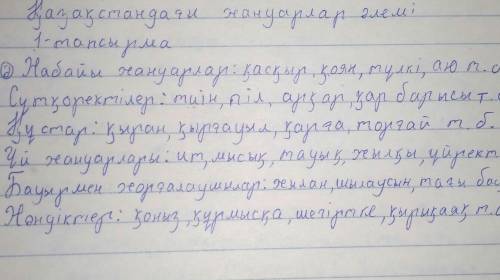 Қазақстандағы жануарлар әлемі
1-тапсырма
② Жабайы жануарлар: қасқыр, қоян, түлкі, аю т.с
Сүтқоректілер: тиін, піл, арқар, қар барысы т.
Құстар: қыран, қырғауыл, қарға, торғай т. б.
Үй жануарлары: ит, мысық, тауық, жылқы, үйрект
Бауырмен жорғалаушылар: жылан, шылаусын, тағы бас
Жәндіктер: қоңыз, құрмысқа, шегіртке, қырықаяқ т.с